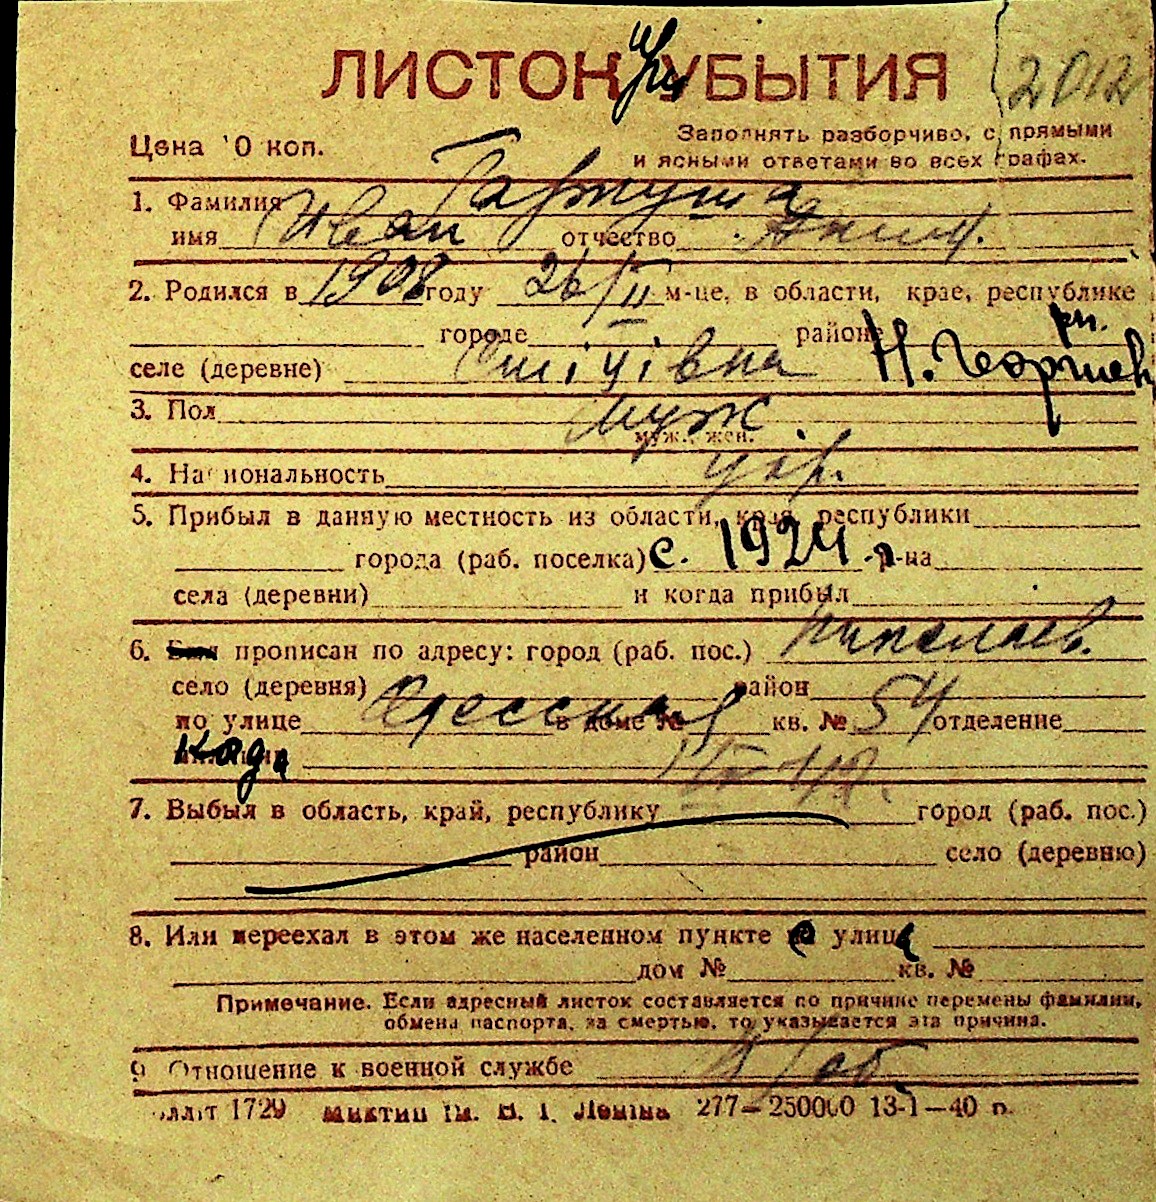 ЛИСТОК при УБЫТИЯ
2012
Цена 10 коп.
Заполнять разборчиво, с прямыми
и ясными ответами во всех графах.
1. Фамилия Гаркуша
имя Иван отчество
2. Родился в 1908 году 26/II м-це, в области, крае, республике
городе районе рн.
селе (деревне) Н. Георгиев
3. Пол муж
муж., жен.
4. Национальность укр.
5. Прибыл в данную местность из области, края, республики
города (раб. поселка) с. 1924 р-на
села (деревни) и когда прибыл
6. Был прописан по адресу: город (раб. пос.) Николаев.
село (деревня) район
по улице Одесская в доме № кв. № 54 отделение
7. Выбыл в область, край, республику город (раб. пос.)
район село (деревню)
8. Или переехал в этом же населенном пункте с улица
дом № кв. №
Примечание. Если адресный листок составляется по причине перемены фамилии,
обмена паспорта, за смертью, то указывается эта причина.
9. Отношение к военной службе
1729 ім. В. І. Леніна 277—250000 13-1—40 р.